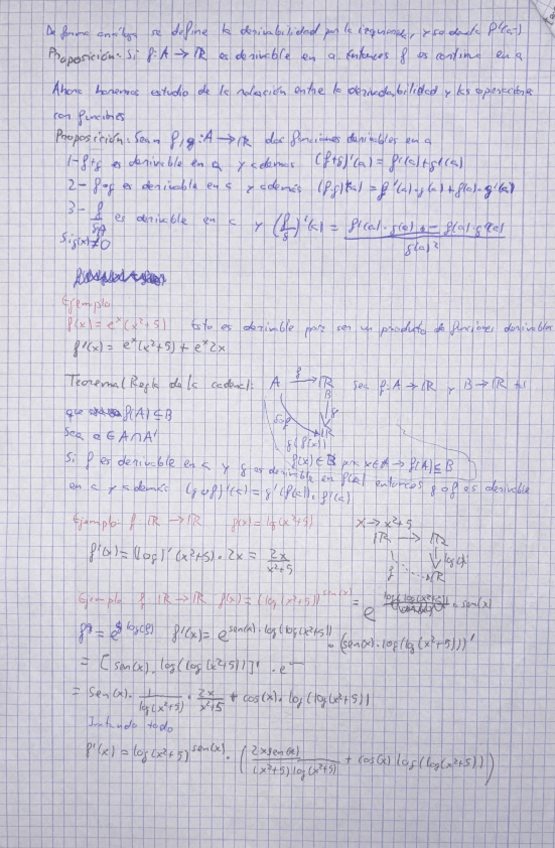 De forma análoga se define la derivabilidad por la izquierda, y se denota f'(a-)
Proposición: Si f: A → ℝ es derivable en a entonces f es continua en a
Ahora haremos estudio de la relación entre la derivabilidad y las operaciones
con funciones
Proposición: Sean f, g: A → ℝ dos funciones derivables en a
1- f+g es derivable en a y además (f+g)'(a) = f'(a)+g'(a)
2- f·g es derivable en a y además (fg)'(a) = f'(a)·g(a)+f(a)·g'(a)
3- f/g es derivable en a y (f/g)'(a) = (f'(a)·g(a) - f(a)·g'(a))/g(a)²
Si g(x)≠0
Ejemplo
f(x) = eˣ(x²+5) Esto es derivable por ser un producto de funciones derivables
f'(x) = eˣ(x²+5) + eˣ2x
Teorema (Regla de la cadena): A f→ ℝ Sea f: A → ℝ y B → ℝ tal
B
que f(A) ⊆ B
g∘f g ℝ
Sea a ∈ A∩A'
g(f(x))
f(x) ∈ B para x∈A → f(A) ⊆ B
Si f es derivable en a y g es derivable en f(a) entonces g∘f es derivable
en a y además (g∘f)'(a) = g'(f(a))·f'(a)
Ejemplo f: ℝ → ℝ f(x) = log(x²+5) x → x²+5
ℝ → ℝ
f'(x) = (log)'(x²+5)·2x = 2x/(x²+5)
f ℝ
Ejemplo f: ℝ → ℝ f(x) = (log(x²+5))^sen(x) = e
f^g = e^(g log(f)) f'(x) = e^(sen(x)·log(log(x²+5))) · (sen(x)·log(log(x²+5)))'
= [sen(x)·log(log(x²+5))]' · e
= sen(x)· 1/log(x²+5) · 2x/(x²+5) + cos(x)·log(log(x²+5))
Juntando todo
f'(x) = log(x²+5)^sen(x) · (2x sen(x)/((x²+5)log(x²+5)) + cos(x) log(log(x²+5)))